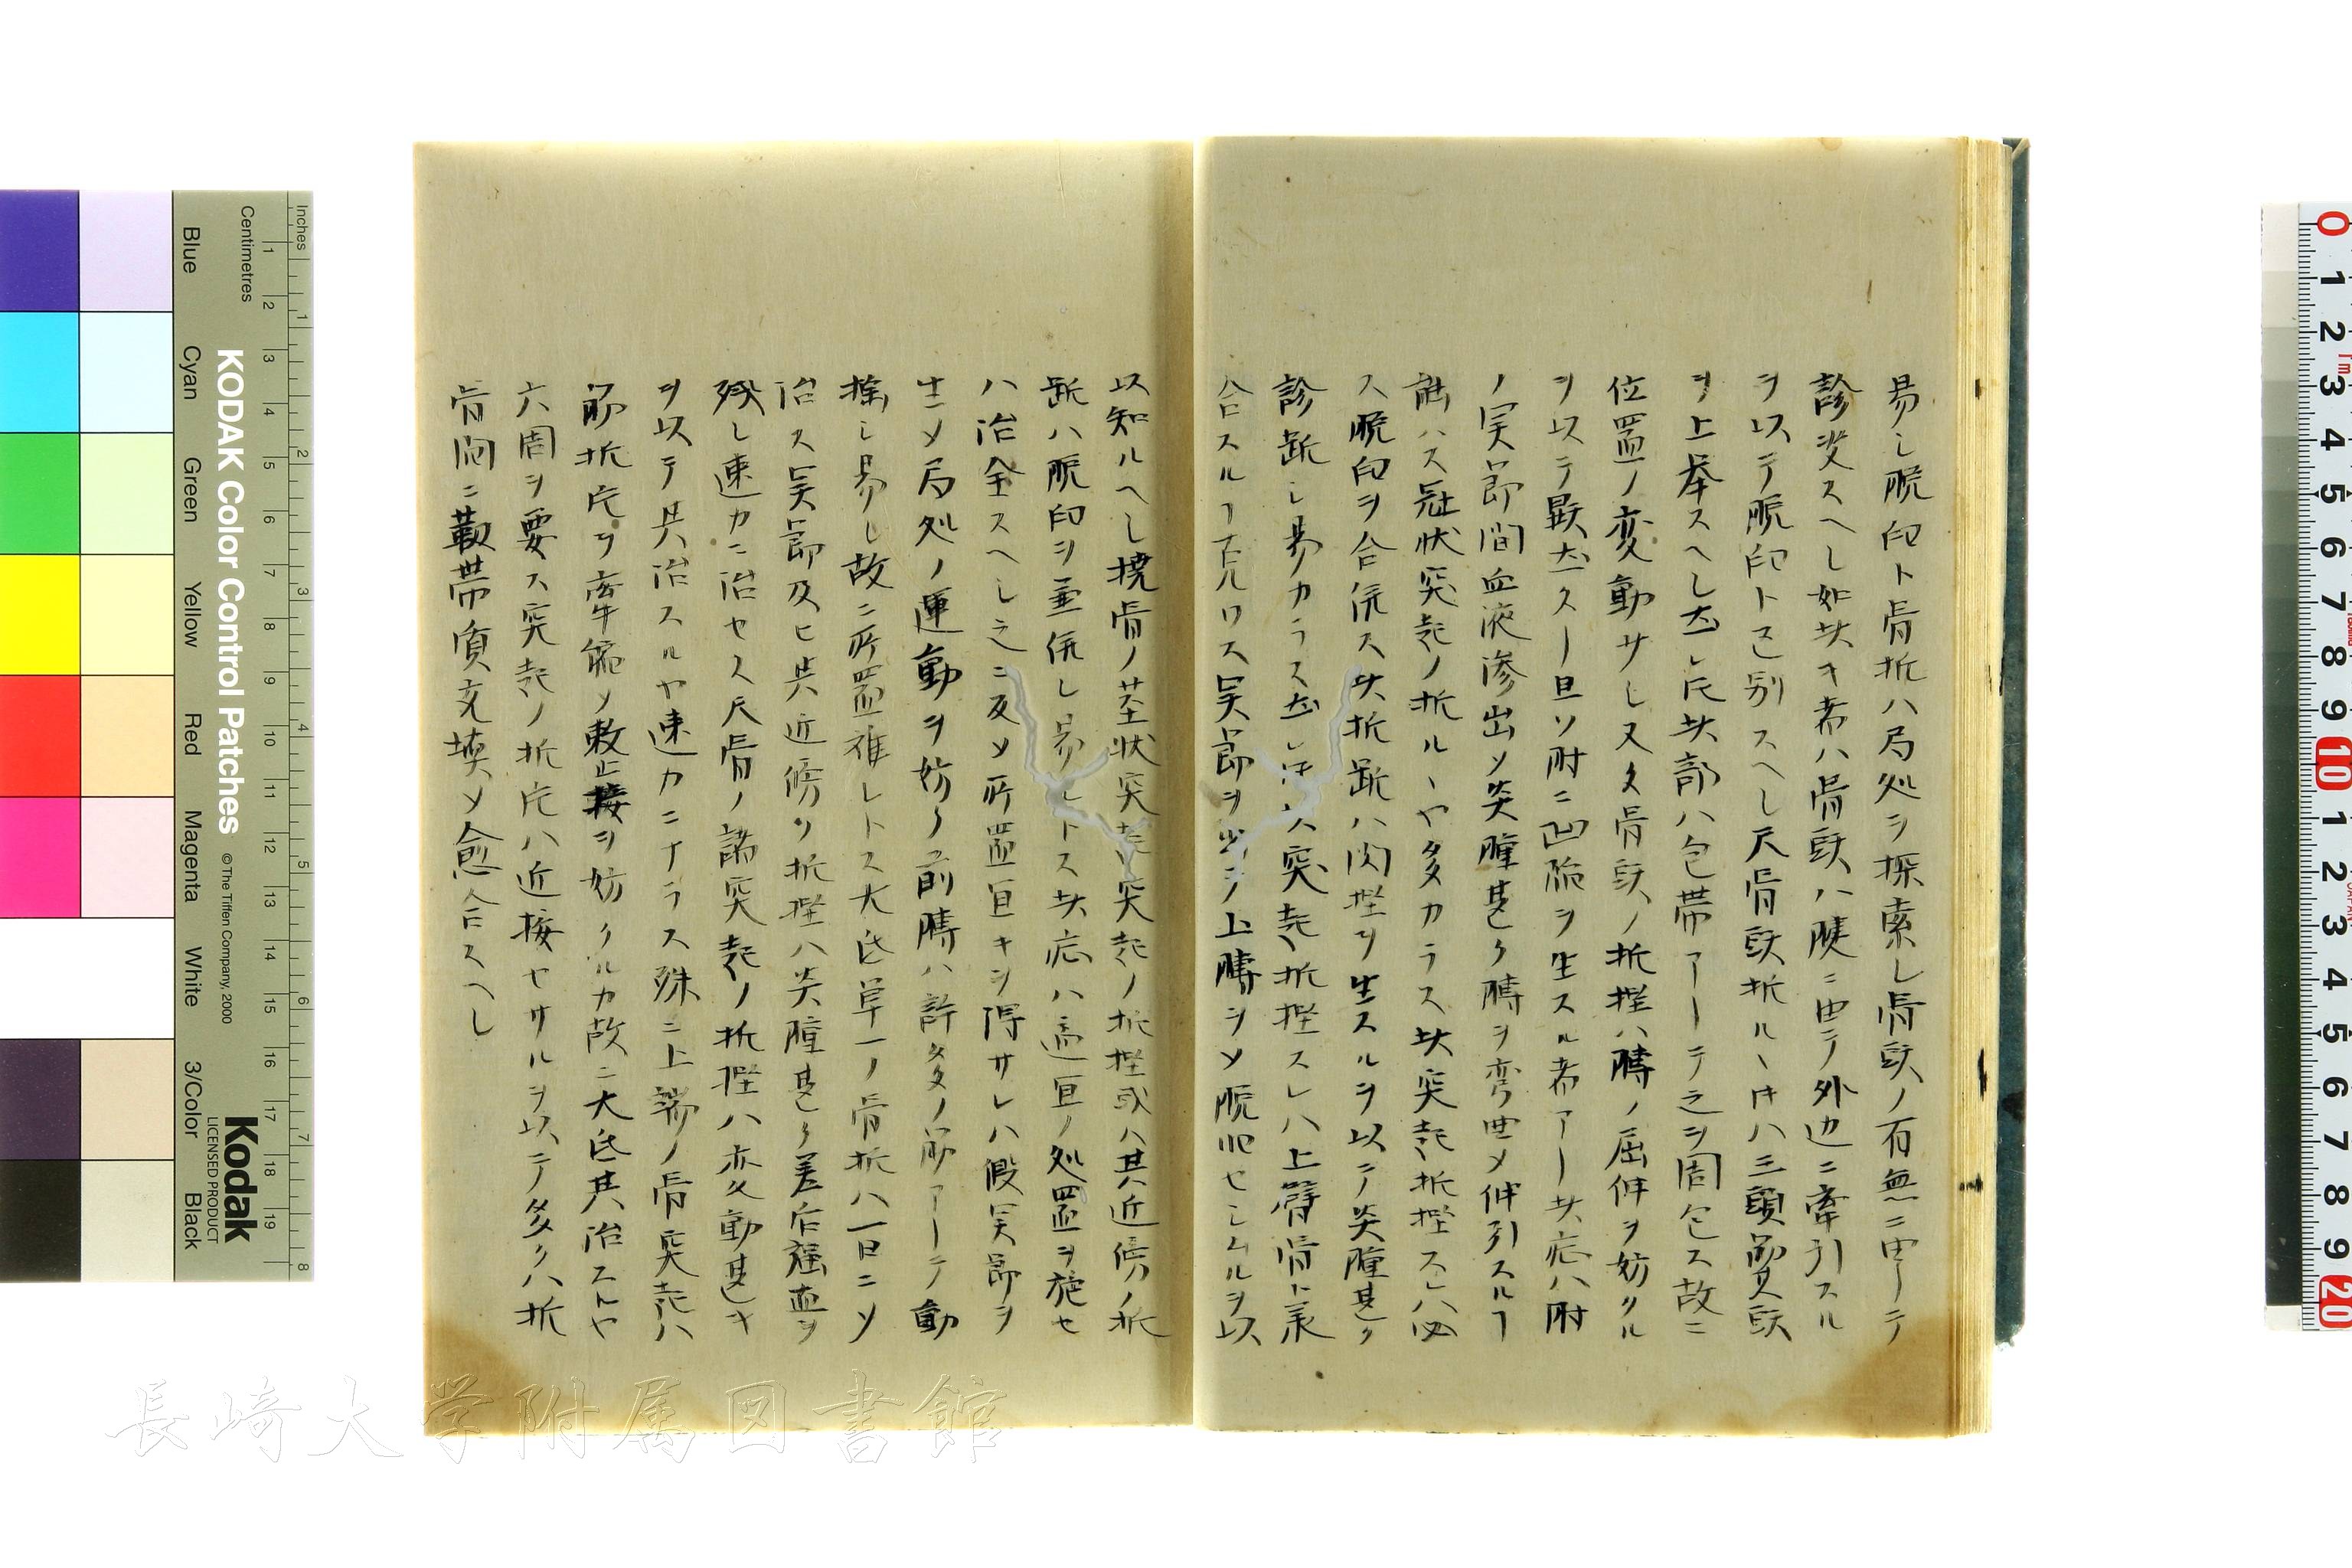 易シ脱臼ト骨折ハ局処ヲ探索シ骨頭ノ有無ニ由ーテ
診断スヘシ如此キ者ハ骨頭ハ腱ニ由テ外边ニ牽引スル
ヲ以テ脱臼ト区別スヘシ尺骨頭折ルヽ时ハ三頭筋頭
ヲ上挙スヘシ然レ𪜈此部ハ包帯アーテ之ヲ囲包ス故ニ
位置ノ変動サシ又タ骨頭ノ折挫ハ膊ノ屈伸ヲ妨クル
ヲ以テ顕然スー且ソ肘ニ凹陥ヲ生スル者アー此症ハ肘
ノ関節間血液滲出ソ炎腫甚タ膊ヲ弯曲メ伸引スルヿ
能ハス冠状突起ノ折ルヽや多カラス此突起折挫スレハ必
ス脱臼ヲ合併ス此折断ハ関挫ヲ生スルヲ以テ炎腫甚タ
診断シ易カラス然レ𪜈此突起折挫スレハ上臂骨ト
合スルヿ克ハス関節ヲ 上膊ヲメ脱肥セシムルヲ以
以知ルヘシ撓骨ノ茎状突起突起ノ折挫或ハ其近傍ノ折
断ハ脱臼ヲ兼併シ易シトス此症ハ適宜ノ処置ヲ施セ
ハ治全スヘシ之ニ反ソ所置宜キヲ得サレハ假関節ヲ
生ソ局処ノ運動ヲ妨ク前膊ハ許多ノ筋アーテ動
揺シ易シ故ニ所置难シトス大氐单一ノ骨折ハ一日ニソ
治ス関節及ヒ其近傍ノ折挫ハ炎腫甚タ差后强直ヲ
残シ速カニ治セス尺骨ノ諸突起ノ折挫ハ変動甚キ
ヲ以テ其治スルヤ速カニナラス殊ニ上端ノ骨突起ハ
筋折片ヲ牽縮ソ接ヲ妨クルカ故ニ大氐其治スルヤ
六周ヲ要ス突起ノ折片ハ近接セサルヲ以テ多クハ折
骨間ニ靱帯質充填ソ愈合スヘシ
長崎大学附属図書館
KODAK Color Control Patches
©The Tiffen Company, 2000
Kodak
LICENSED PRODUCT
Inches
Centimetres
Blue
Cyan
Green
Yellow
Red
Magenta
White
3/Color
Black